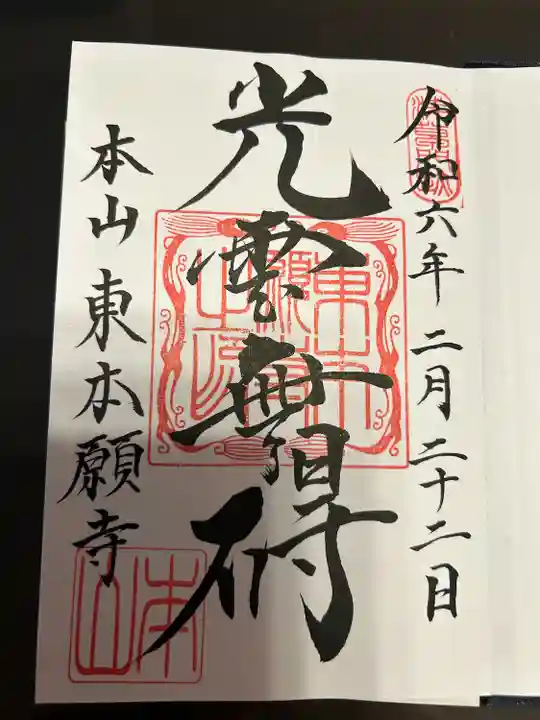 令和六年二月二十二日
光雲無碍
本山東本願寺
本山